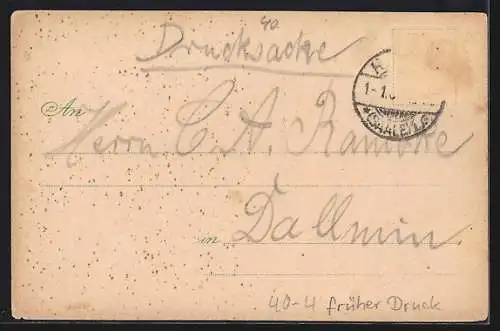 40
Drucksache
1-1.0
*(SAALE) 1.g
An
Herrn C. A. Rambke
in Dallmin
40-4 früher Druck